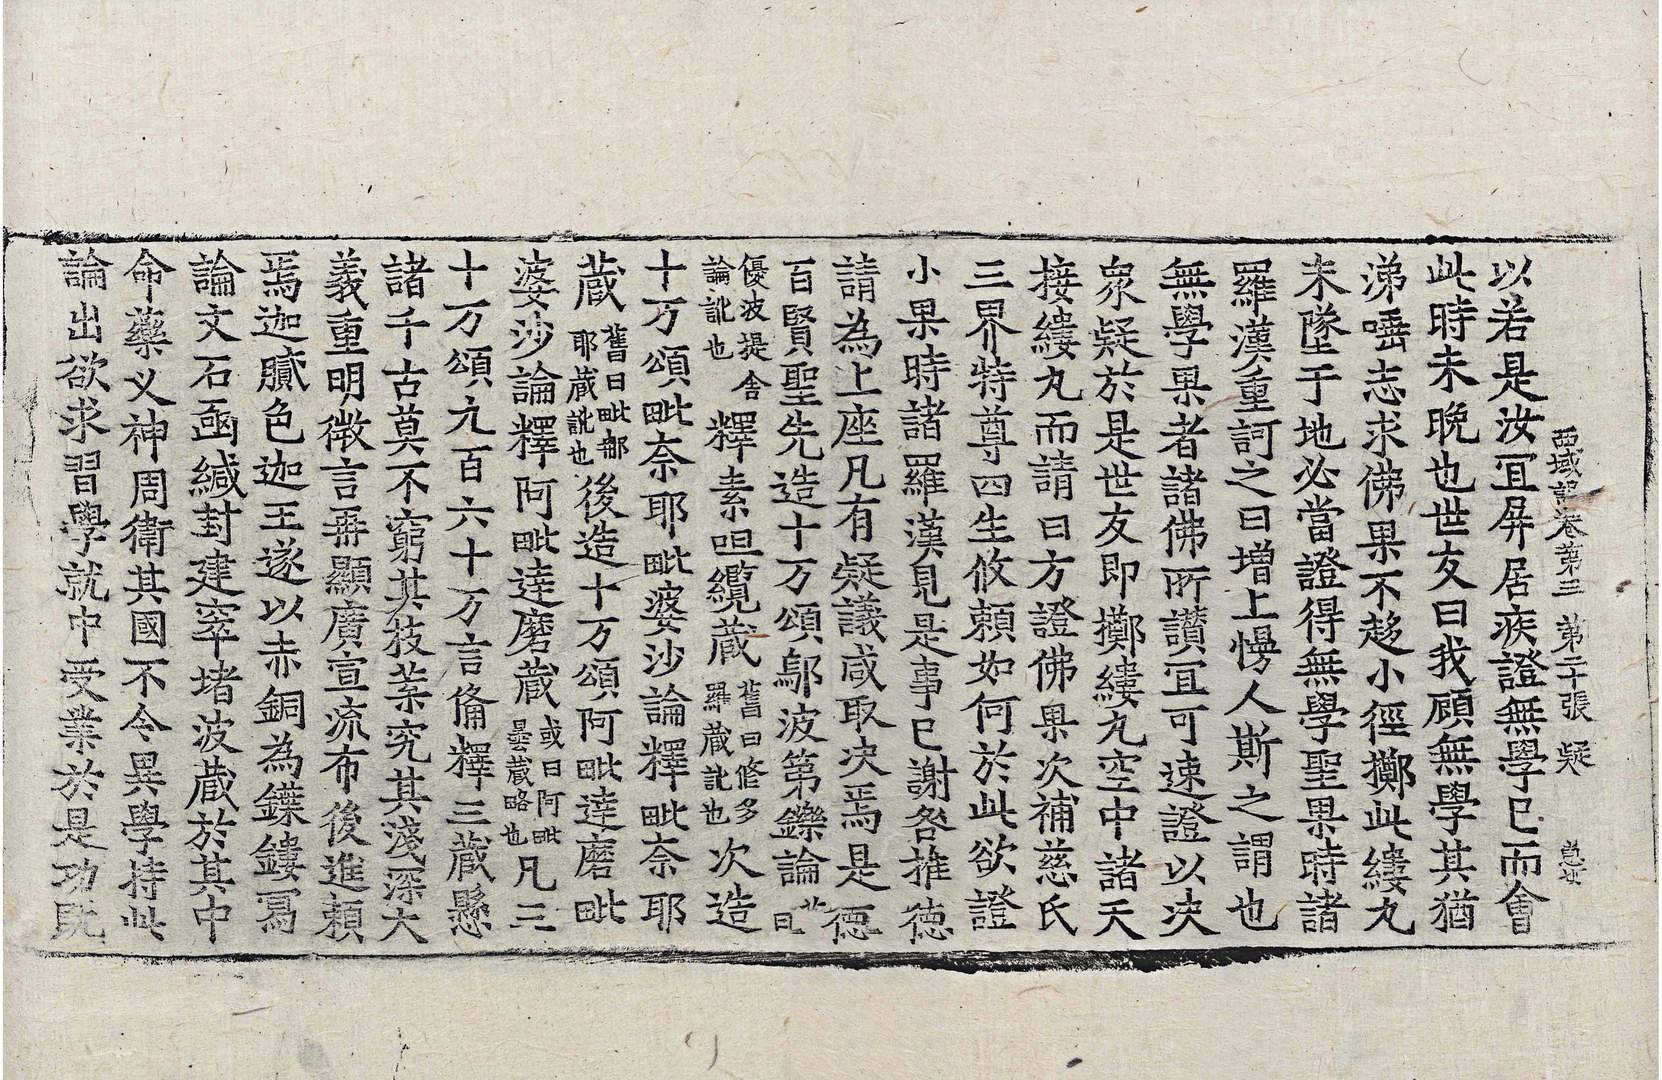 西域記卷第三 第二十張 疑
以若是汝冝屛居疾證無學已而會
此時未晚也世友曰我顧無學其猶
涕唾志求佛果不趍小徑擲此縷丸
未墜于地必當證得無學聖果時諸
羅漢重訶之曰增上慢人斯之謂也
無學果者諸佛所讃冝可速證以决
衆疑於是世友即擲縷丸空中諸天
接縷丸而請曰方證佛果次補慈氏
三界特尊四生攸頼如何於此欲證
小果時諸羅漢見是事已謝咎推徳
請為上座凡有疑議咸取决焉是德
百賢聖先造十万頌鄔波第鑠論舊曰
優波提舍論訛也釋素呾纜蔵舊曰修多羅蔵訛也次造
十万頌毗奈耶毗婆沙論釋毗奈耶
蔵舊曰毗那耶蔵訛也後造十万頌阿毗達磨毗
婆沙論釋阿毗達磨蔵或曰阿毗曇蔵略也凡三
十万頌九百六十万言俻釋三蔵懸
諸千古莫不窮其枝葉究其淺深大
義重明微言再顯廣宣流布後進頼
焉迦膩色迦王遂以赤銅為鍱鏤冩
論文石凾緘封建窣堵波蔵於其中
命藥叉神周衛其國不令異學持此
論出欲求習學就中受業於是功旣